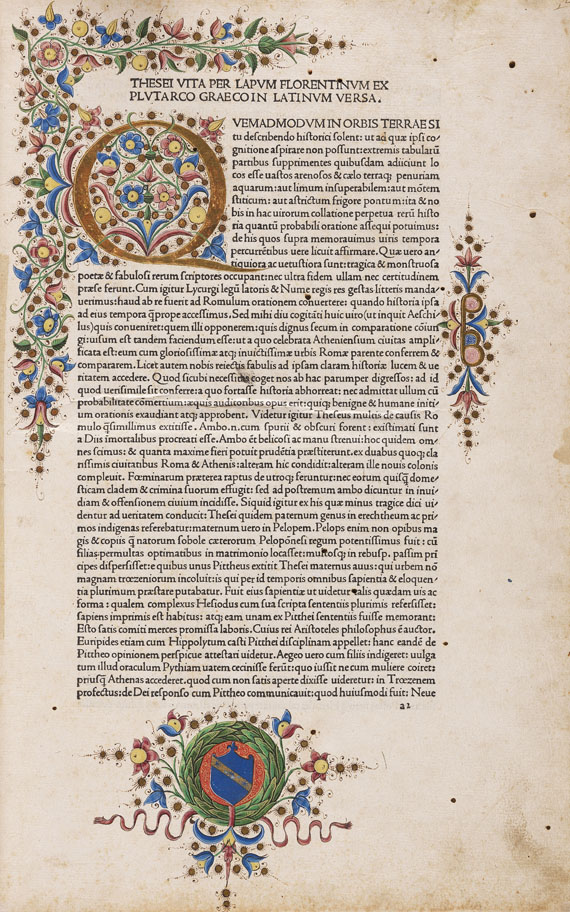 THESEI VITA PER LAPVM FLORENTINVM EX
PLVTARCO GRAECO IN LATINVM VERSA.
QVEMADMODVM IN ORBIS TERRAE SI
tu describendo historici solent: ut ad quæ ipsi co/
gnitione aspirare non possunt: extremis tabularū
partibus supprimentes quibusdam adiiciunt lo
cos esse uastos arenosos & cælo terraq; penuriam
aquarum: aut limum insuperabilem: aut mōtem
sciticum: aut astrictum frigore pontum: ita & no
bis in hac uirorum collatione perpetua rerū histo
ria quantū probabili oratione assequi potuimus:
de his quos supra memorauimus uiris tempora
percurrētibus uere licuit affirmare. Quæ uero an/
tiquiora ac uetustiora sunt: tragica & monstruosa
poetæ & fabulosi rerum scriptores occupant: nec ultra fidem ullam nec certitudinem
præse ferunt. Cum igitur Lycurgi legū latoris & Nume regis res gestas litteris manda/
uerimus: haud ab re fuerit ad Romulum orationem cōuertere: quando historia ipsa
ad eius tempora q̄prope accessimus. Sed mihi diu cogitāti huic uiro (ut inquit Aeschi/
lus) quis conueniret: quem illi opponerem: quis dignus secum in comparatione cōiun
gi: uisum est tandem faciendum esse: ut a quo celebrata Atheniensium ciuitas ampli/
ficata est: eum cum gloriosissimæ atq; inuictissimæ urbis Romæ parente conferrem &
compararem. Licet autem nobis reiectis fabulis ad ipsam claram historiæ lucem & ue
ritatem accedere. Quod sicubi necessitas coget nos ab hac parumper digressos: ad id
quod uerisimile sit conferre: a quo fortasse historia abhorreat: nec admittat ullum cū
probabilitate cōmertium: æquis auditoribus opus erit: quiq; benigne & humane initi/
um orationis exaudiant atq; approbent. Videtur igitur Theseus multis de causis Ro
mulo q̄simillimus extitisse. Ambo .n. cum spurii & obscuri forent: existimati sunt
a Diis imortalibus procreati esse. Ambo ēt belicosi ac manu strenui: hoc quidem om/
nes scimus: & quanta maxime fieri potuit prudētia præstiterunt. ex duabus quoq; cla
rissimis ciuitatibus Roma & Athenis: alteram hic condidit: alteram ille nouis colonis
compleuit. Fœminarum præterea raptus de utroq; feruntur: nec eorum quisq̄ dome/
sticam cladem & crimina suorum effugit: sed ad postremum ambo dicuntur in inui/
diam & offensionem ciuium incidisse. Siquid igitur ex his quæ minus tragice dici ui/
dentur ad ueritatem conducit: Thesei quidem paternum genus in erechtheum ac pri/
mos indigenas referebatur: maternum uero in Pelopem. Pelops enim non opibus ma
gis & copiis q̄ natorum sobole cæterorum Pelopōnesi regum potentissimus fuit: cū
filias permultas optimatibus in matrimonio locasset: multosq; in rebusp. passim pri
cipes dispersisset: e quibus unus Pittheus extitit Thesei maternus auus: qui urbem nō
magnam trœzeniorum incoluit: is qui per id temporis omnibus sapientia & eloquen/
tia plurimum præstare putabatur. Fuit eius sapientiæ ut uidetur talis quædam uis ac
forma: qualem complexus Hesiodus cum sua scripta sententiis plurimis refersisset:
sapiens imprimis est habitus: atq; eam unam ex Pitthei sententiis fuisse memorant:
Esto satis comiti merces promissa laboris. Cuius rei Aristoteles philosophus ē auctor.
Euripides etiam cum Hippolytum casti Pitthei disciplinam appellet: hanc eandē de
Pittheo opinionem perspicue attestari uidetur. Aegeo uero cum filiis indigeret: uulga
tum illud oraculum Pythiam uatem cecinisse ferūt: quo iussit ne cum muliere coiret:
priusq̄ Athenas accederet. quod cum non satis aperte dixisse uideretur: in Trœzenem
profectus: de Dei responso cum Pittheo communicauit: quod huiusmodi fuit: Neue
a2